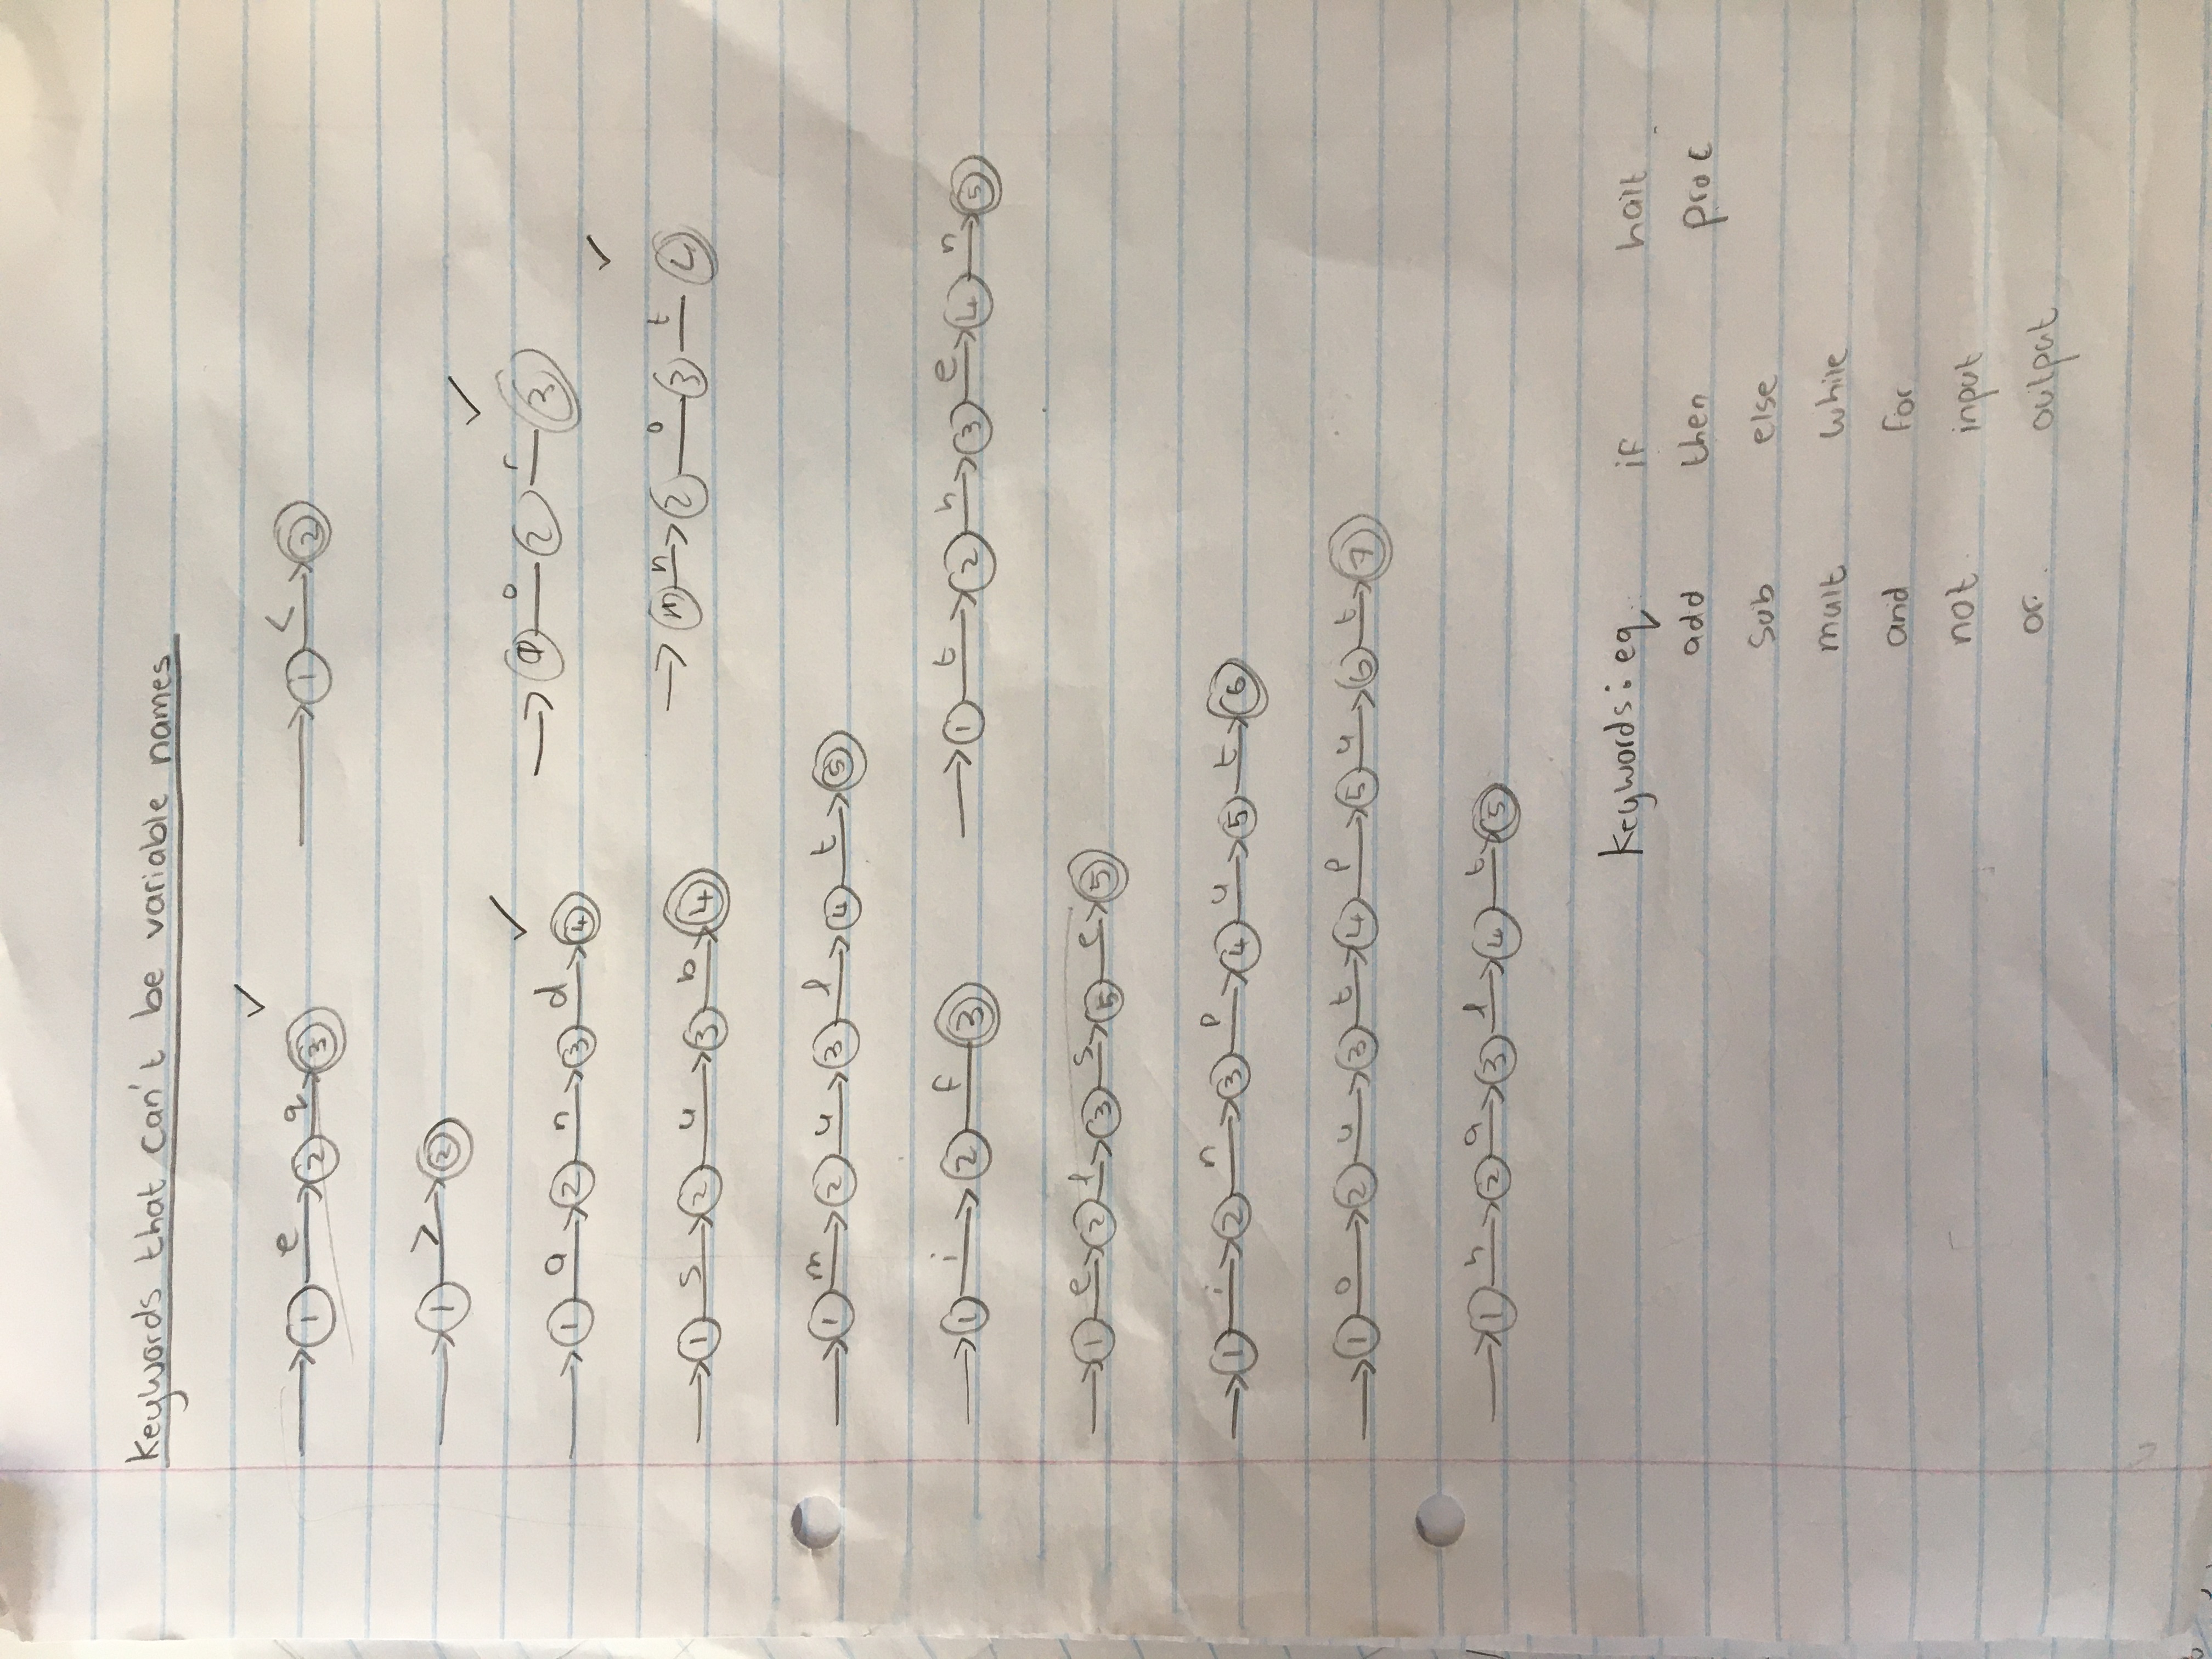 Keywords that can't be variable names
✓
1 e 2 q 3
1 < 2
1 > 2
✓ ✓
1 a 2 n 3 d 4
1 o 2 r 3
✓
1 s 2 u 3 b 4
n 2 o 3 t 4
1 m 2 u 3 l 4 t 5
1 i 2 f 3
1 t 2 h 3 e 4 n 5
1 e 2 l 3 s 5 e 5
1 i 2 n 3 p 4 u 5 t 6
1 o 2 u 3 t 4 p 5 u 6 t 7
1 h 2 a 3 l 4 t 5
Keywords: eq if halt
add then proc
sub else
mult while
and for
not input
or output